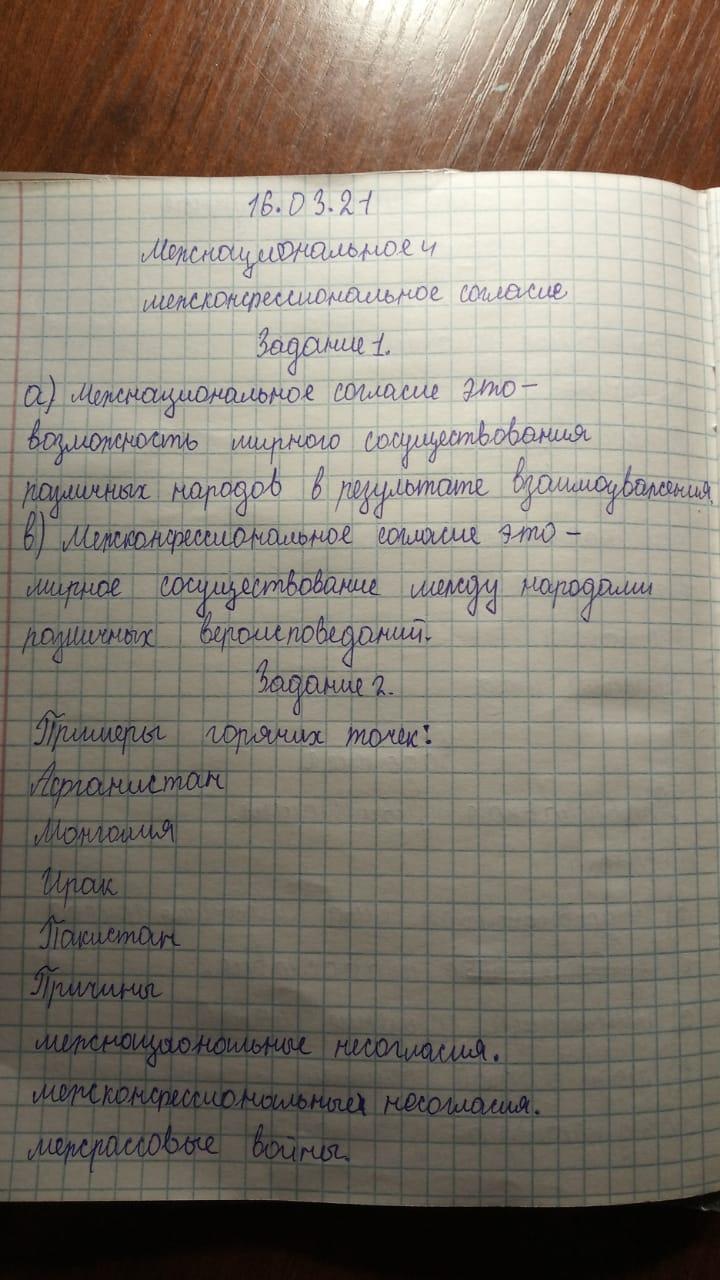 16.03.21
Межнациональное и
межконфессиональное согласие
Задание 1.
а) Межнациональное согласие это –
возможность мирного сосуществования
различных народов в результате взаимоуважения.
в) Межконфессиональное согласие это –
мирное сосуществование между народами
различных вероисповеданий.
Задание 2.
Примеры горячих точек:
Афганистан
Монголия
Ирак
Пакистан
Причины
межнациональные несогласия.
межконфессиональные несогласия.
межрассовые войны.